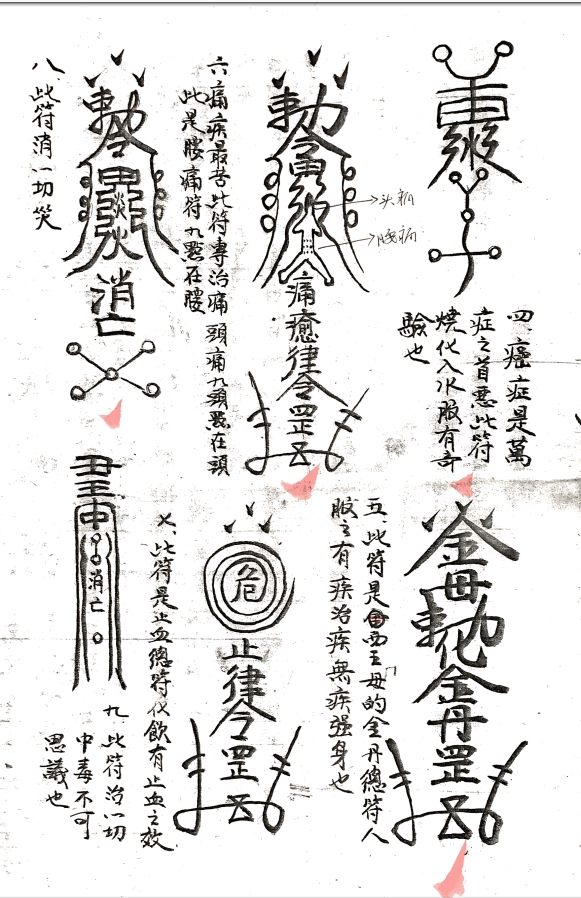 四、癌症是萬
症之首惡此符
燒化入水服有奇
驗也
勅令
头痛
腰痛
痛癒律令罡
六痛疾最苦此符專治痛頭痛九頭點在頭
此是腰痛符九點在腰
勅令
消亡
八、此符消一切炎
金母勅化金丹罡
五、此符是西王母的金丹總符人
服之有疾治疾無疾强身也
危
止律令罡
七、此符是止血總符化飲有止血之效
消亡
九、此符治一切
中毒不可
思議也